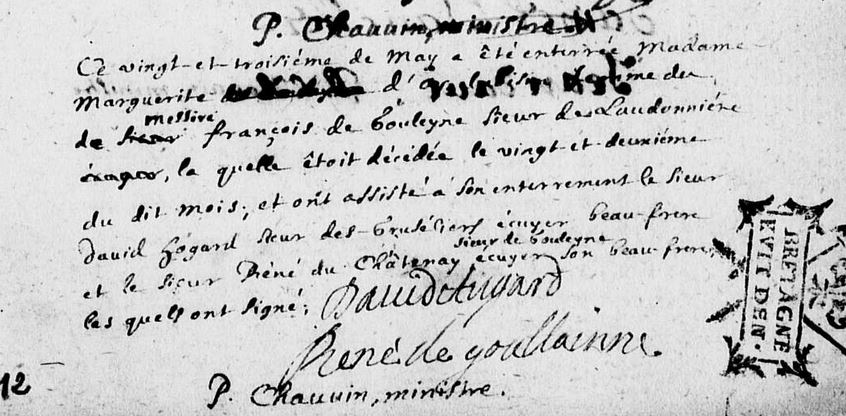 P. Chauvin, ministre.
Ce vingt-et-troisiéme de May a été enterrée Madame
Marguerite d'
de messire françois de Gouleyne sieur des Laudonniére
, la quelle êtoit décédée le vingt-et-deuxiéme
du dit mois; et ont assisté à son enterrement le sieur
David Hogard sieur des-Bruséliers écuyer beau-frere
et le sieur Réné du Châtenay sieur de Gouleyne ecuyer son beau-frere
les quels ont signé;
René de goullainne.
12
P. Chauvin, ministre.
BRETAGNE
EVIT DEN.